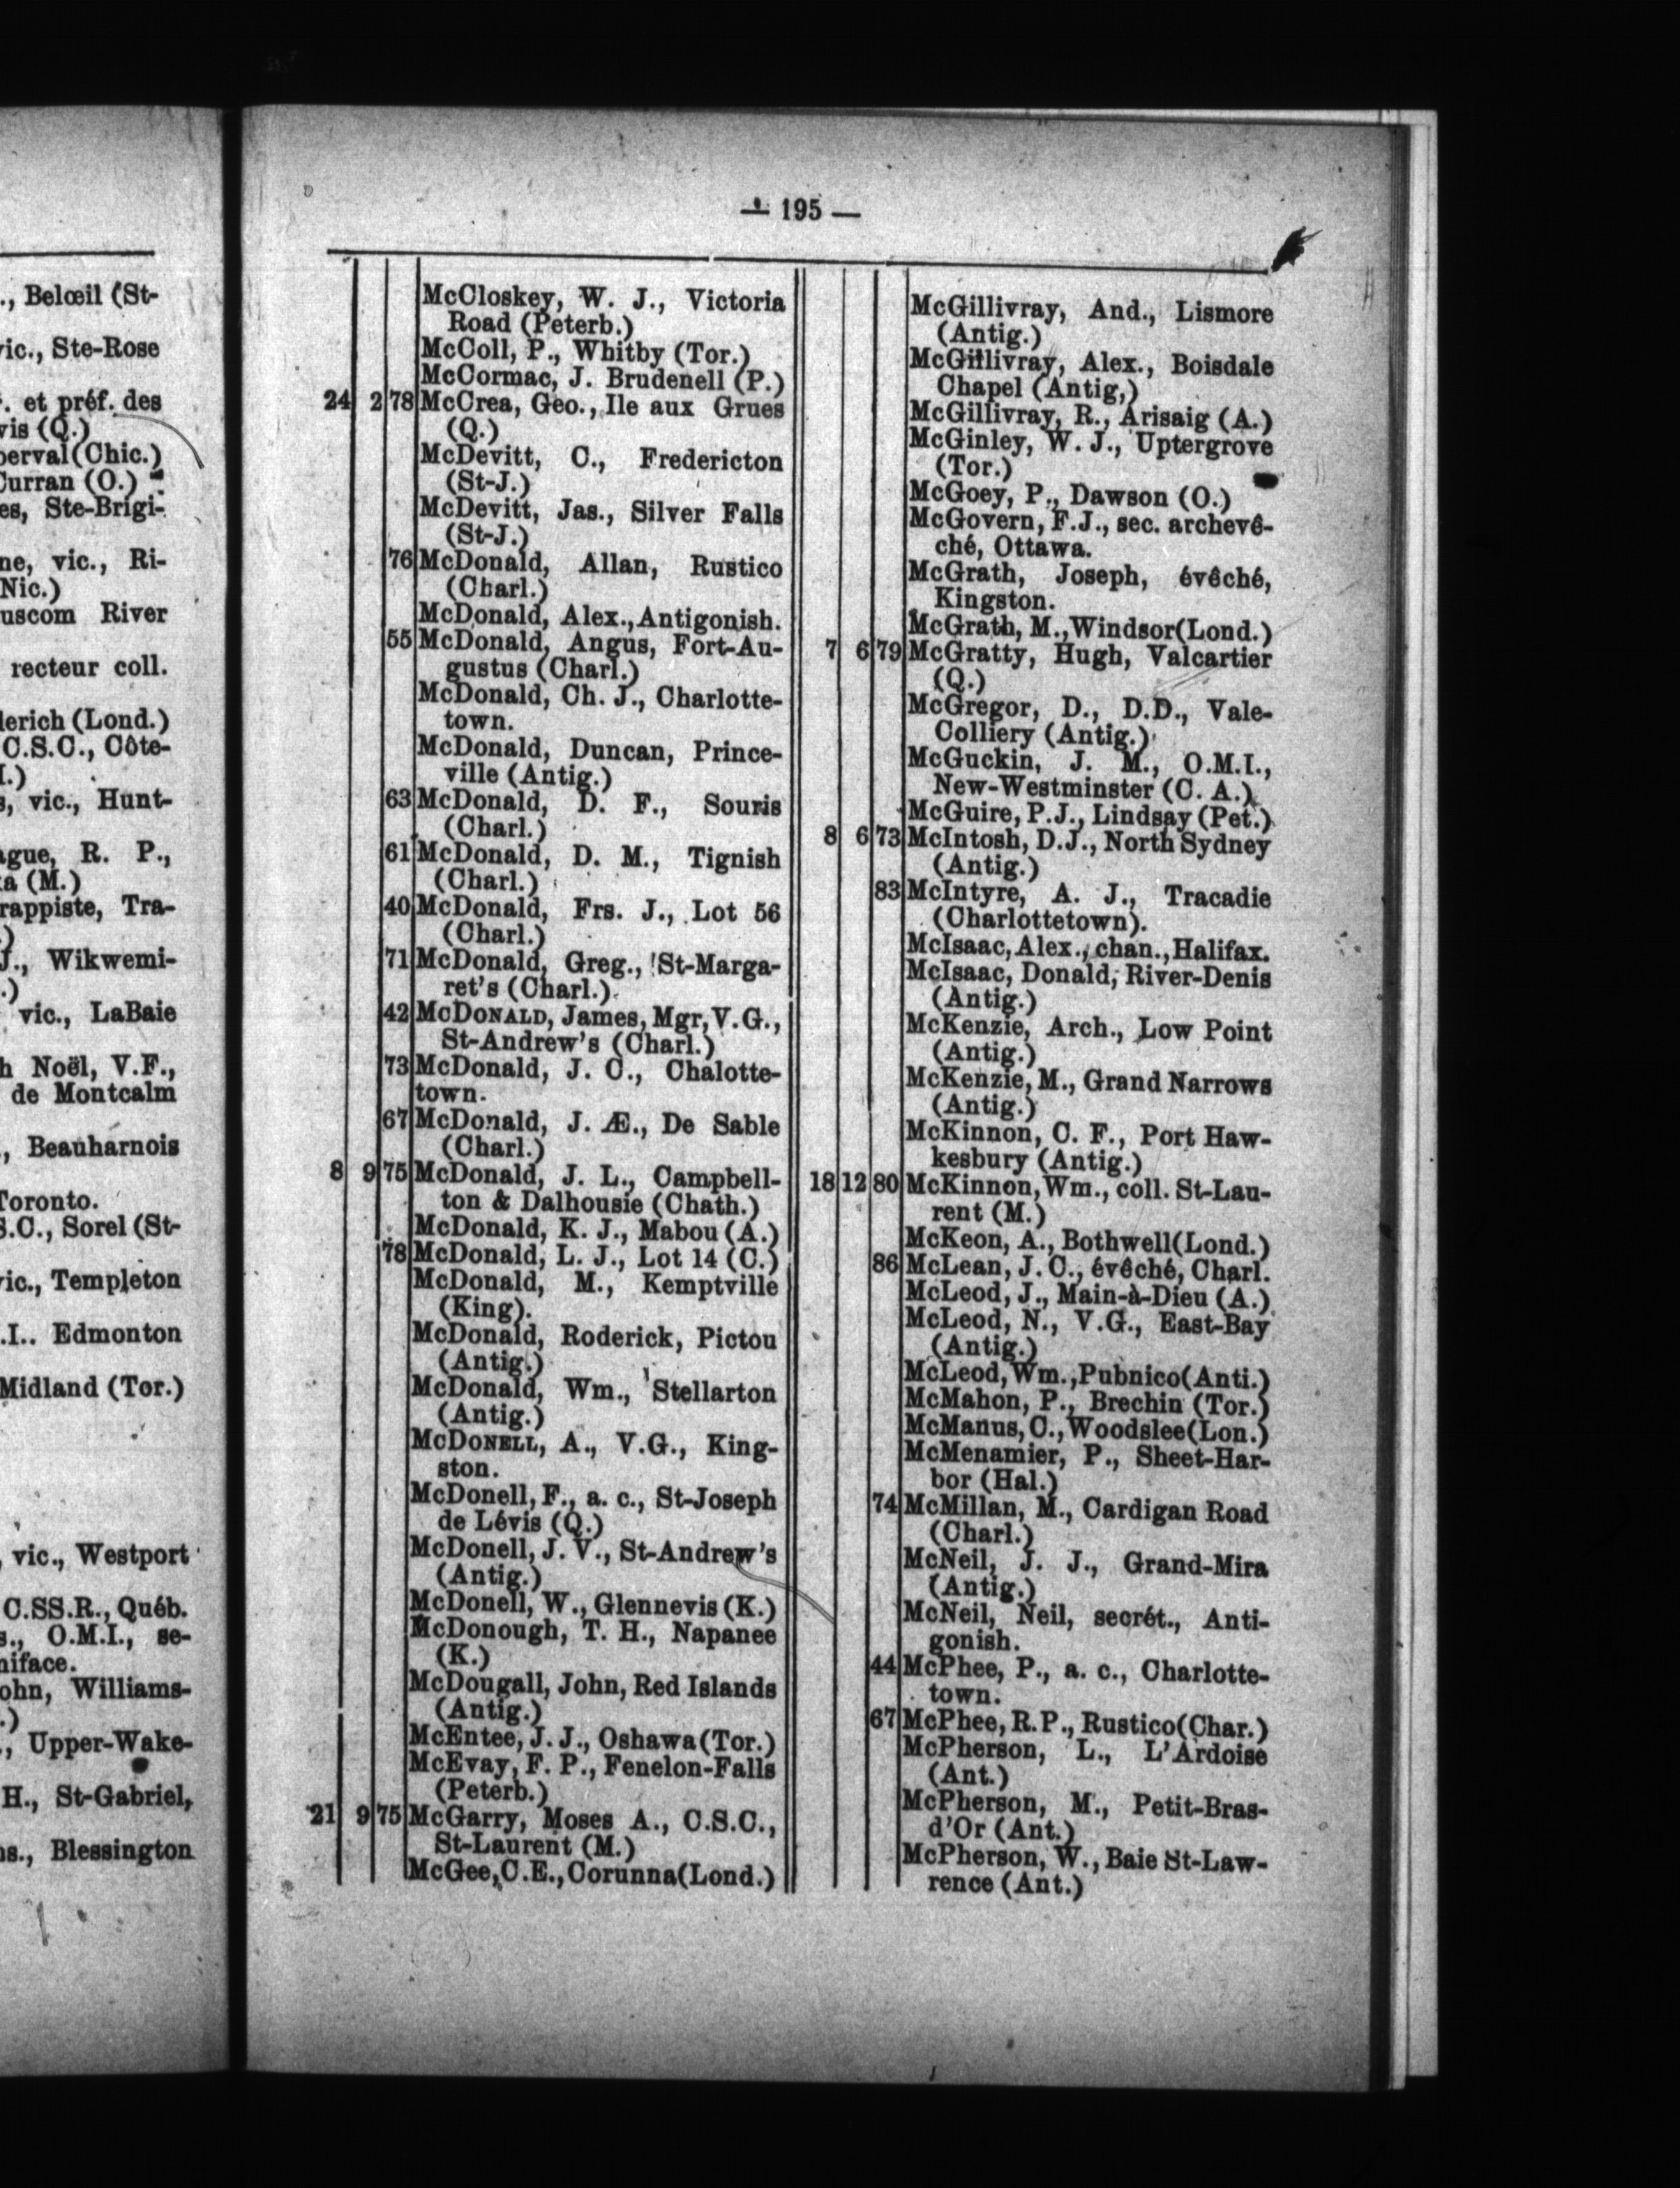 ., Belœil (St-
vic., Ste-Rose
. et préf. des
vis (Q.)
perval (Chic.)
Curran (O.)
es, Ste-Brigi-
ne, vic., Ri-
Nic.)
uscom River
recteur coll.
lerich (Lond.)
C.S.C., Côte-
I.)
s, vic., Hunt-
ague, R. P.,
ka (M.)
rappiste, Tra-
.)
J., Wikwemi-
.)
vic., LaBaie
h Noël, V.F.,
de Montcalm
, Beauharnois
Toronto.
S.C., Sorel (St-
vic., Templeton
.I.. Edmonton
Midland (Tor.)
, vic., Westport
C.SS.R., Québ.
s., O.M.I., se-
niface.
ohn, Williams-
.)
., Upper-Wake-
H., St-Gabriel,
as., Blessington
— 195 —
McCloskey, W. J., Victoria
Road (Peterb.)
McColl, P., Whitby (Tor.)
McCormac, J. Brudenell (P.)
24 2 78 McCrea, Geo., Ile aux Grues
(Q.)
McDevitt, C., Fredericton
(St-J.)
McDevitt, Jas., Silver Falls
(St-J.)
76 McDonald, Allan, Rustico
(Charl.)
McDonald, Alex., Antigonish.
55 McDonald, Angus, Fort-Au-
gustus (Charl.)
McDonald, Ch. J., Charlotte-
town.
McDonald, Duncan, Prince-
ville (Antig.)
63 McDonald, D. F., Souris
(Charl.)
61 McDonald, D. M., Tignish
(Charl.)
40 McDonald, Frs. J., Lot 56
(Charl.)
71 McDonald, Greg., St-Marga-
ret's (Charl.)
42 McDONALD, James, Mgr, V.G.,
St-Andrew's (Charl.)
73 McDonald, J. C., Chalotte-
town.
67 McDonald, J. Æ., De Sable
(Charl.)
8 9 75 McDonald, J. L., Campbell-
ton & Dalhousie (Chath.)
McDonald, K. J., Mabou (A.)
78 McDonald, L. J., Lot 14 (C.)
McDonald, M., Kemptville
(King).
McDonald, Roderick, Pictou
(Antig.)
McDonald, Wm., Stellarton
(Antig.)
McDONELL, A., V.G., King-
ston.
McDonell, F., a. c., St-Joseph
de Lévis (Q.)
McDonell, J. V., St-Andrew's
(Antig.)
McDonell, W., Glennevis (K.)
McDonough, T. H., Napanee
(K.)
McDougall, John, Red Islands
(Antig.)
McEntee, J. J., Oshawa (Tor.)
McEvay, F. P., Fenelon-Falls
(Peterb.)
21 9 75 McGarry, Moses A., C.S.C.,
St-Laurent (M.)
McGee, C.E., Corunna (Lond.)
McGillivray, And., Lismore
(Antig.)
McGillivray, Alex., Boisdale
Chapel (Antig,)
McGillivray, R., Arisaig (A.)
McGinley, W. J., Uptergrove
(Tor.)
McGoey, P., Dawson (O.)
McGovern, F.J., sec. archevê-
ché, Ottawa.
McGrath, Joseph, évêché,
Kingston.
McGrath, M., Windsor (Lond.)
7 6 79 McGratty, Hugh, Valcartier
(Q.)
McGregor, D., D.D., Vale-
Colliery (Antig.)
McGuckin, J. M., O.M.I.,
New-Westminster (C. A.)
McGuire, P.J., Lindsay (Pet.)
8 6 73 McIntosh, D.J., North Sydney
(Antig.)
83 McIntyre, A. J., Tracadie
(Charlottetown).
McIsaac, Alex., chan., Halifax.
McIsaac, Donald, River-Denis
(Antig.)
McKenzie, Arch., Low Point
(Antig.)
McKenzie, M., Grand Narrows
(Antig.)
McKinnon, C. F., Port Haw-
kesbury (Antig.)
18 12 80 McKinnon, Wm., coll. St-Lau-
rent (M.)
McKeon, A., Bothwell (Lond.)
86 McLean, J. C., évêché, Charl.
McLeod, J., Main-à-Dieu (A.)
McLeod, N., V.G., East-Bay
(Antig.)
McLeod, Wm., Pubnico (Anti.)
McMahon, P., Brechin (Tor.)
McManus, C., Woodslee (Lon.)
McMenamier, P., Sheet-Har-
bor (Hal.)
74 McMillan, M., Cardigan Road
(Charl.)
McNeil, J. J., Grand-Mira
(Antig.)
McNeil, Neil, secrét., Anti-
gonish.
44 McPhee, P., a. c., Charlotte-
town.
67 McPhee, R.P., Rustico (Char.)
McPherson, L., L'Ardoise
(Ant.)
McPherson, M., Petit-Bras-
d'Or (Ant.)
McPherson, W., Baie St-Law-
rence (Ant.)